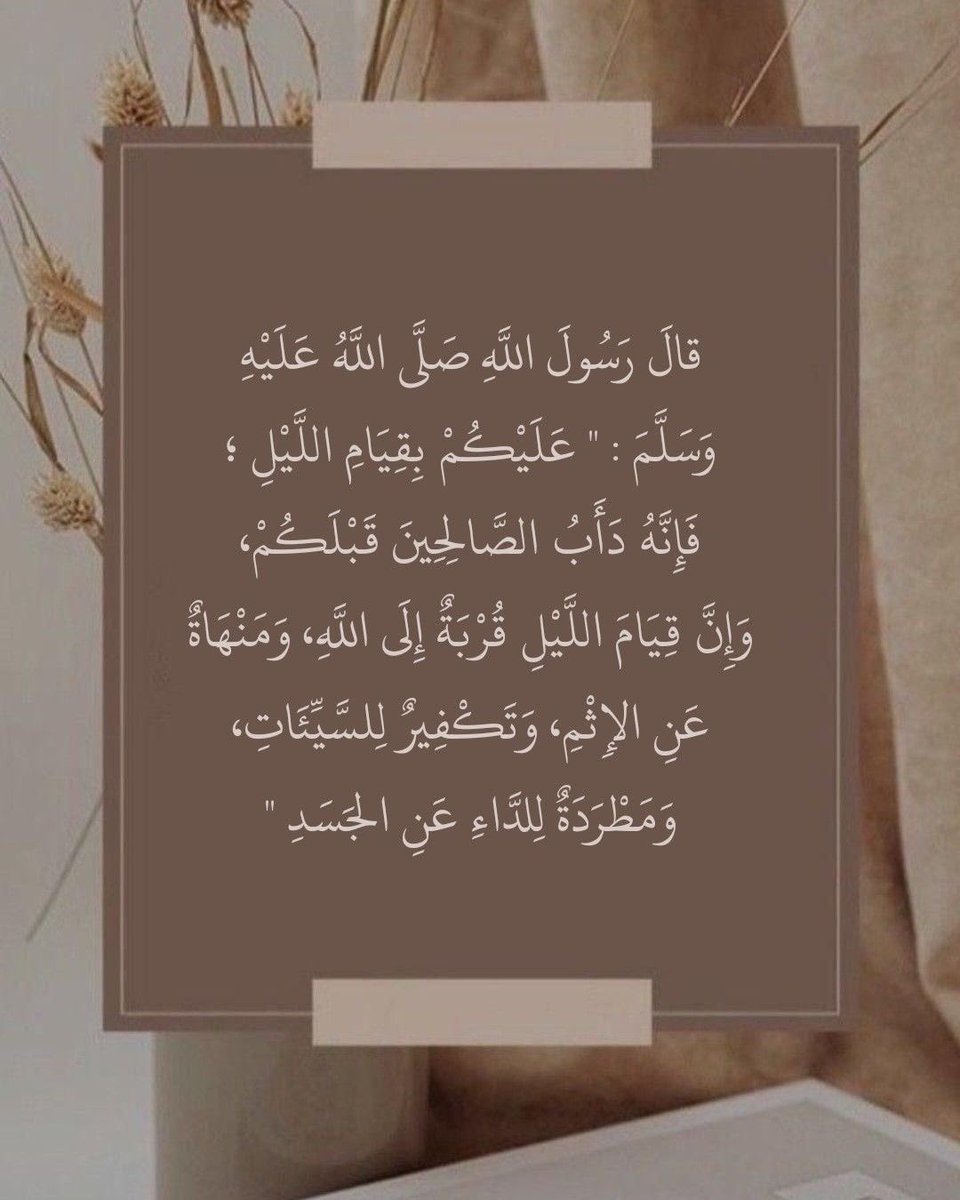 قالَ رَسُولَ اللَّهِ صَلَّى اللَّهُ عَلَيْهِ
وَسَلَّمَ : " عَلَيْكُمْ بِقِيَامِ اللَّيْلِ ؛
فَإِنَّهُ دَأَبُ الصَّالِحِينَ قَبْلَكُمْ،
وَإِنَّ قِيَامَ اللَّيْلِ قُرْبَةٌ إِلَى اللَّهِ، وَمَنْهَاةٌ
عَنِ الإِثْمِ، وَتَكْفِيرٌ لِلسَّيِّئَاتِ،
وَمَطْرَدَةٌ لِلدَّاءِ عَنِ الجَسَدِ "